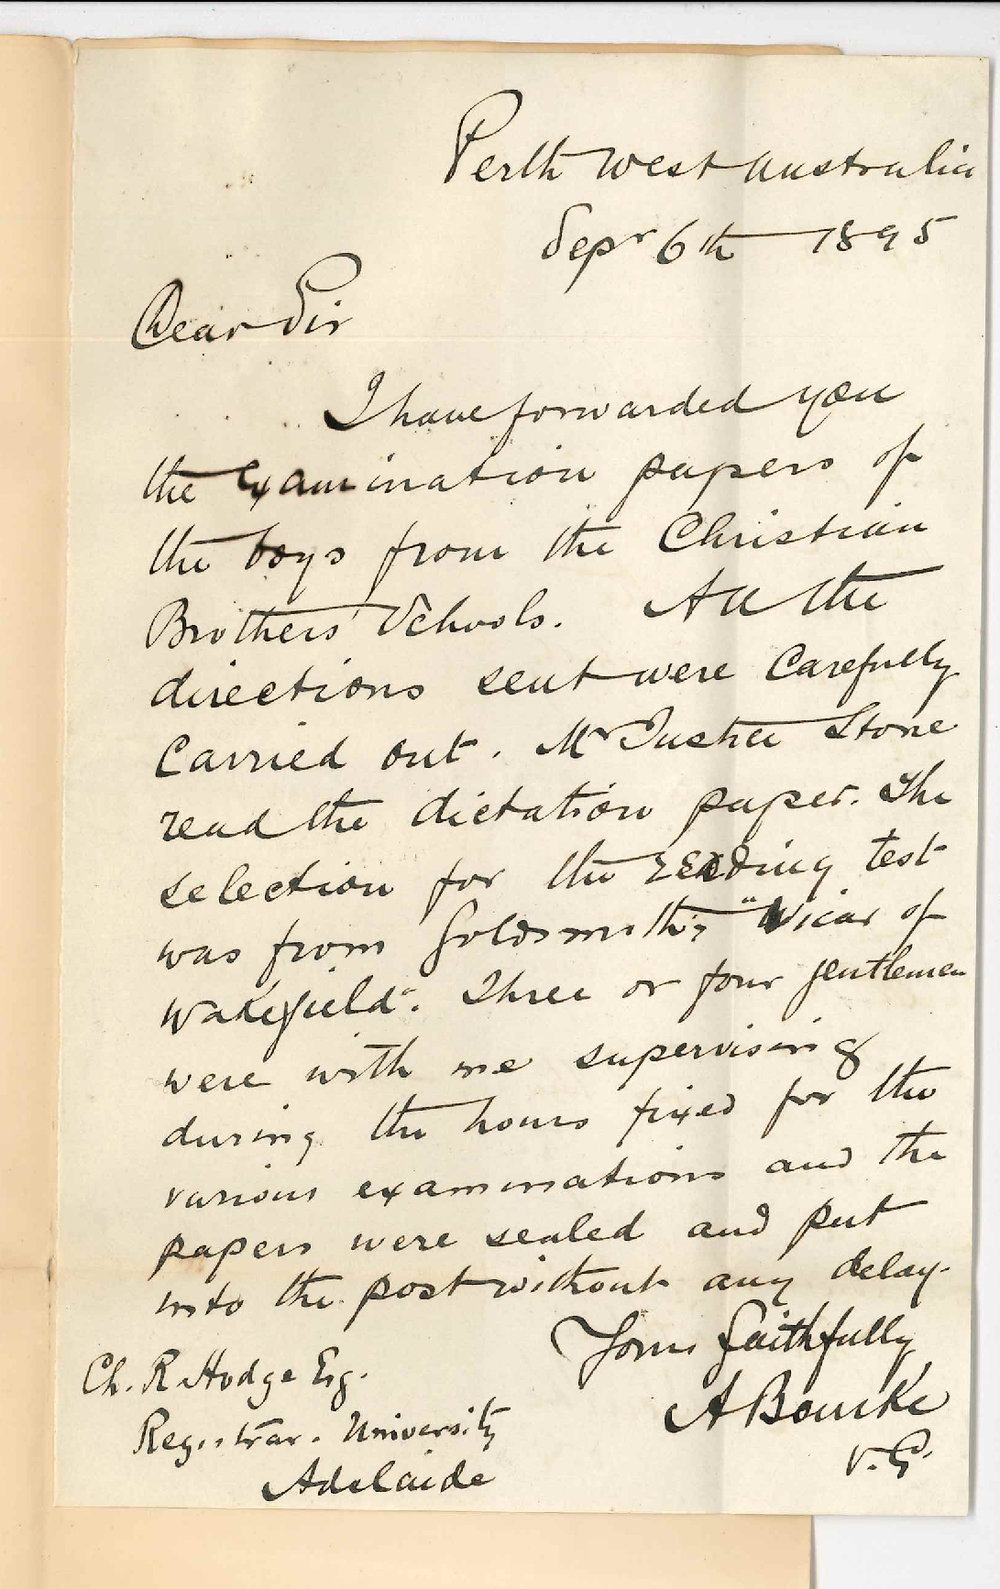 Perth West Australia
Sepr 6th 1895
Dear Sir
I have forwarded you
the Examination papers of
the boys from the Christian
Brothers' Schools. All the
directions sent were Carefully
Carried out. Mr Justice Stone
read the dictation paper. The
selection for the reading test
was from Goldsmith's "Vicar of
Wakefield". Three or four gentlemen
were with me supervising
during the hours fixed for the
various examinations and the
papers were sealed and put
into the post without any delay.
Yours faithfully
A Bourke
V.G.
Ch. R Hodge Esq.
Registrar. University
Adelaide